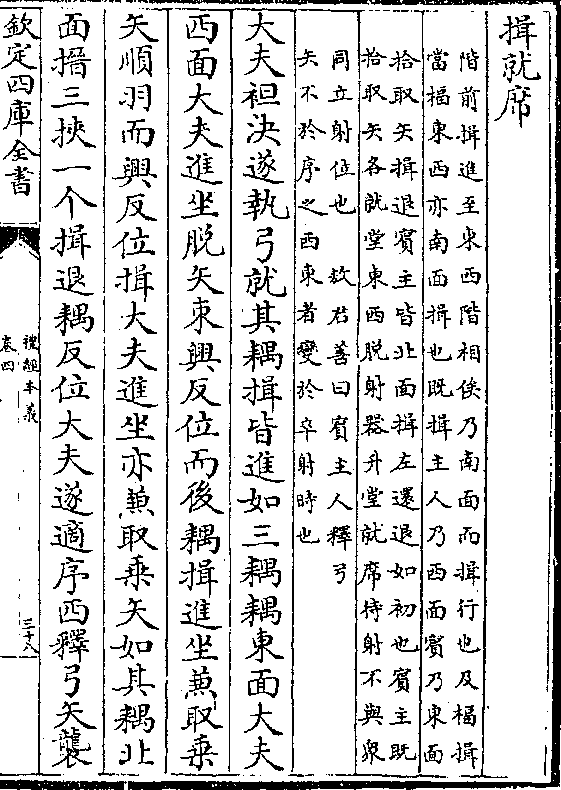 揖就席
階前揖進至東西階相俟乃南面而揖行也及楅揖
當楅東西亦南面揖也既揖主人乃西面賓乃東面
拾取矢揖退賓主皆北面揖左還退如初也賓主既
拾取矢各就堂東西脫射器升堂就席待射不與衆
同立射位也 敖君善曰賓主人釋弓
矢不於序之西東者變於卒射時也
大夫袒決遂執弓就其耦揖皆進如三耦耦東面大夫
西面大夫進坐脫矢束興反位而後耦揖進坐兼取乗
矢順羽而興反位揖大夫進坐亦兼取乗矢如其耦北
面搢三挾一个揖退耦反位大夫遂適序西釋弓矢襲
欽定四庫全書
禮經本義
卷四
三十八